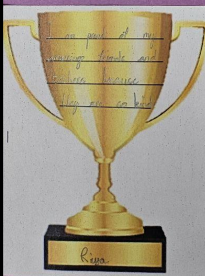 I am proud of my
amazing friends and
teachers because
they are so kind
Riya